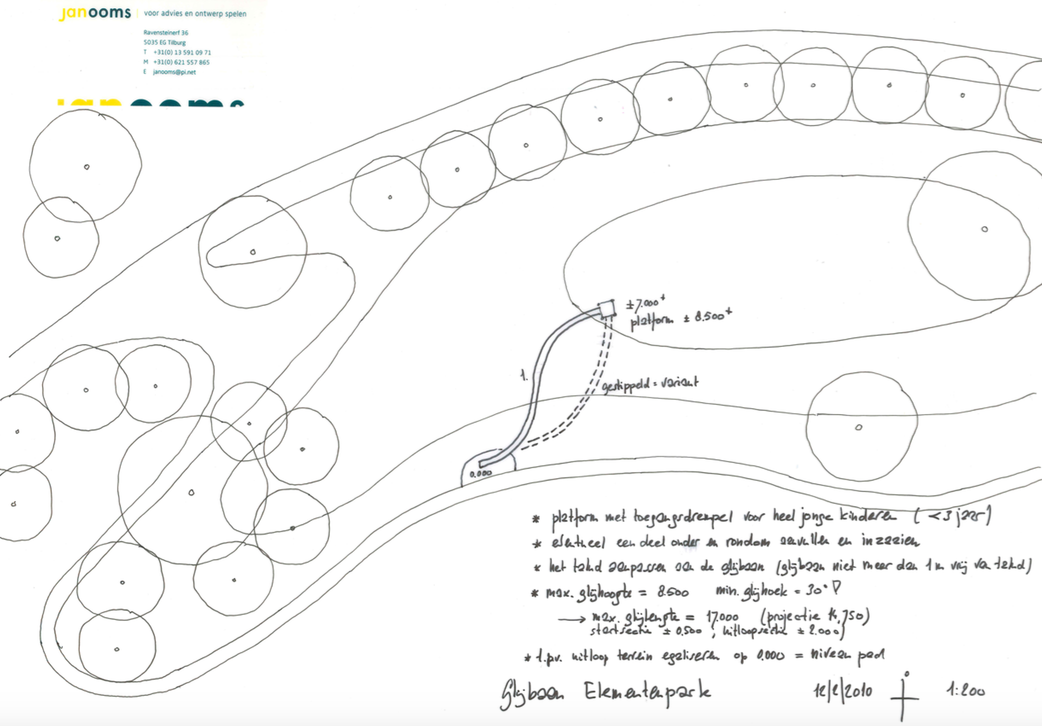 janooms voor advies en ontwerp spelen
Ravensteinerf 36
5035 EG Tilburg
T +31(0) 13 591 09 71
M +31(0) 621 557 865
E janooms@pi.net
janooms
±7.000+
platform ± 8.500+
1.
gestippeld = variant
0.000
* platform met toegangsdrempel voor heel jonge kinderen (<3 jaar)
* eventueel een deel onder en rondom aanvullen en inzaaien
* het talud aanpassen aan de glijbaan (glijbaan niet meer dan 1m vrij van talud)
* max. glijhoogte = 8.500 min. glijhoek = 30°
→ max. glijlengte = 17.000 (projectie 14.750)
startsectie ± 0.500 ; uitloopsectie ± 2.000)
* t.p.v. uitloop terrein egaliseren op 0.000 = niveau pad
Glijbaan Elementenpark 12/2/2010 1:200